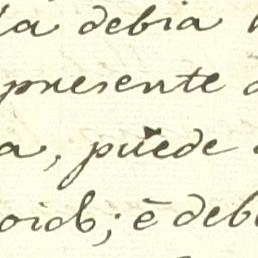 la debia
presente
a, puede
oids; é deb